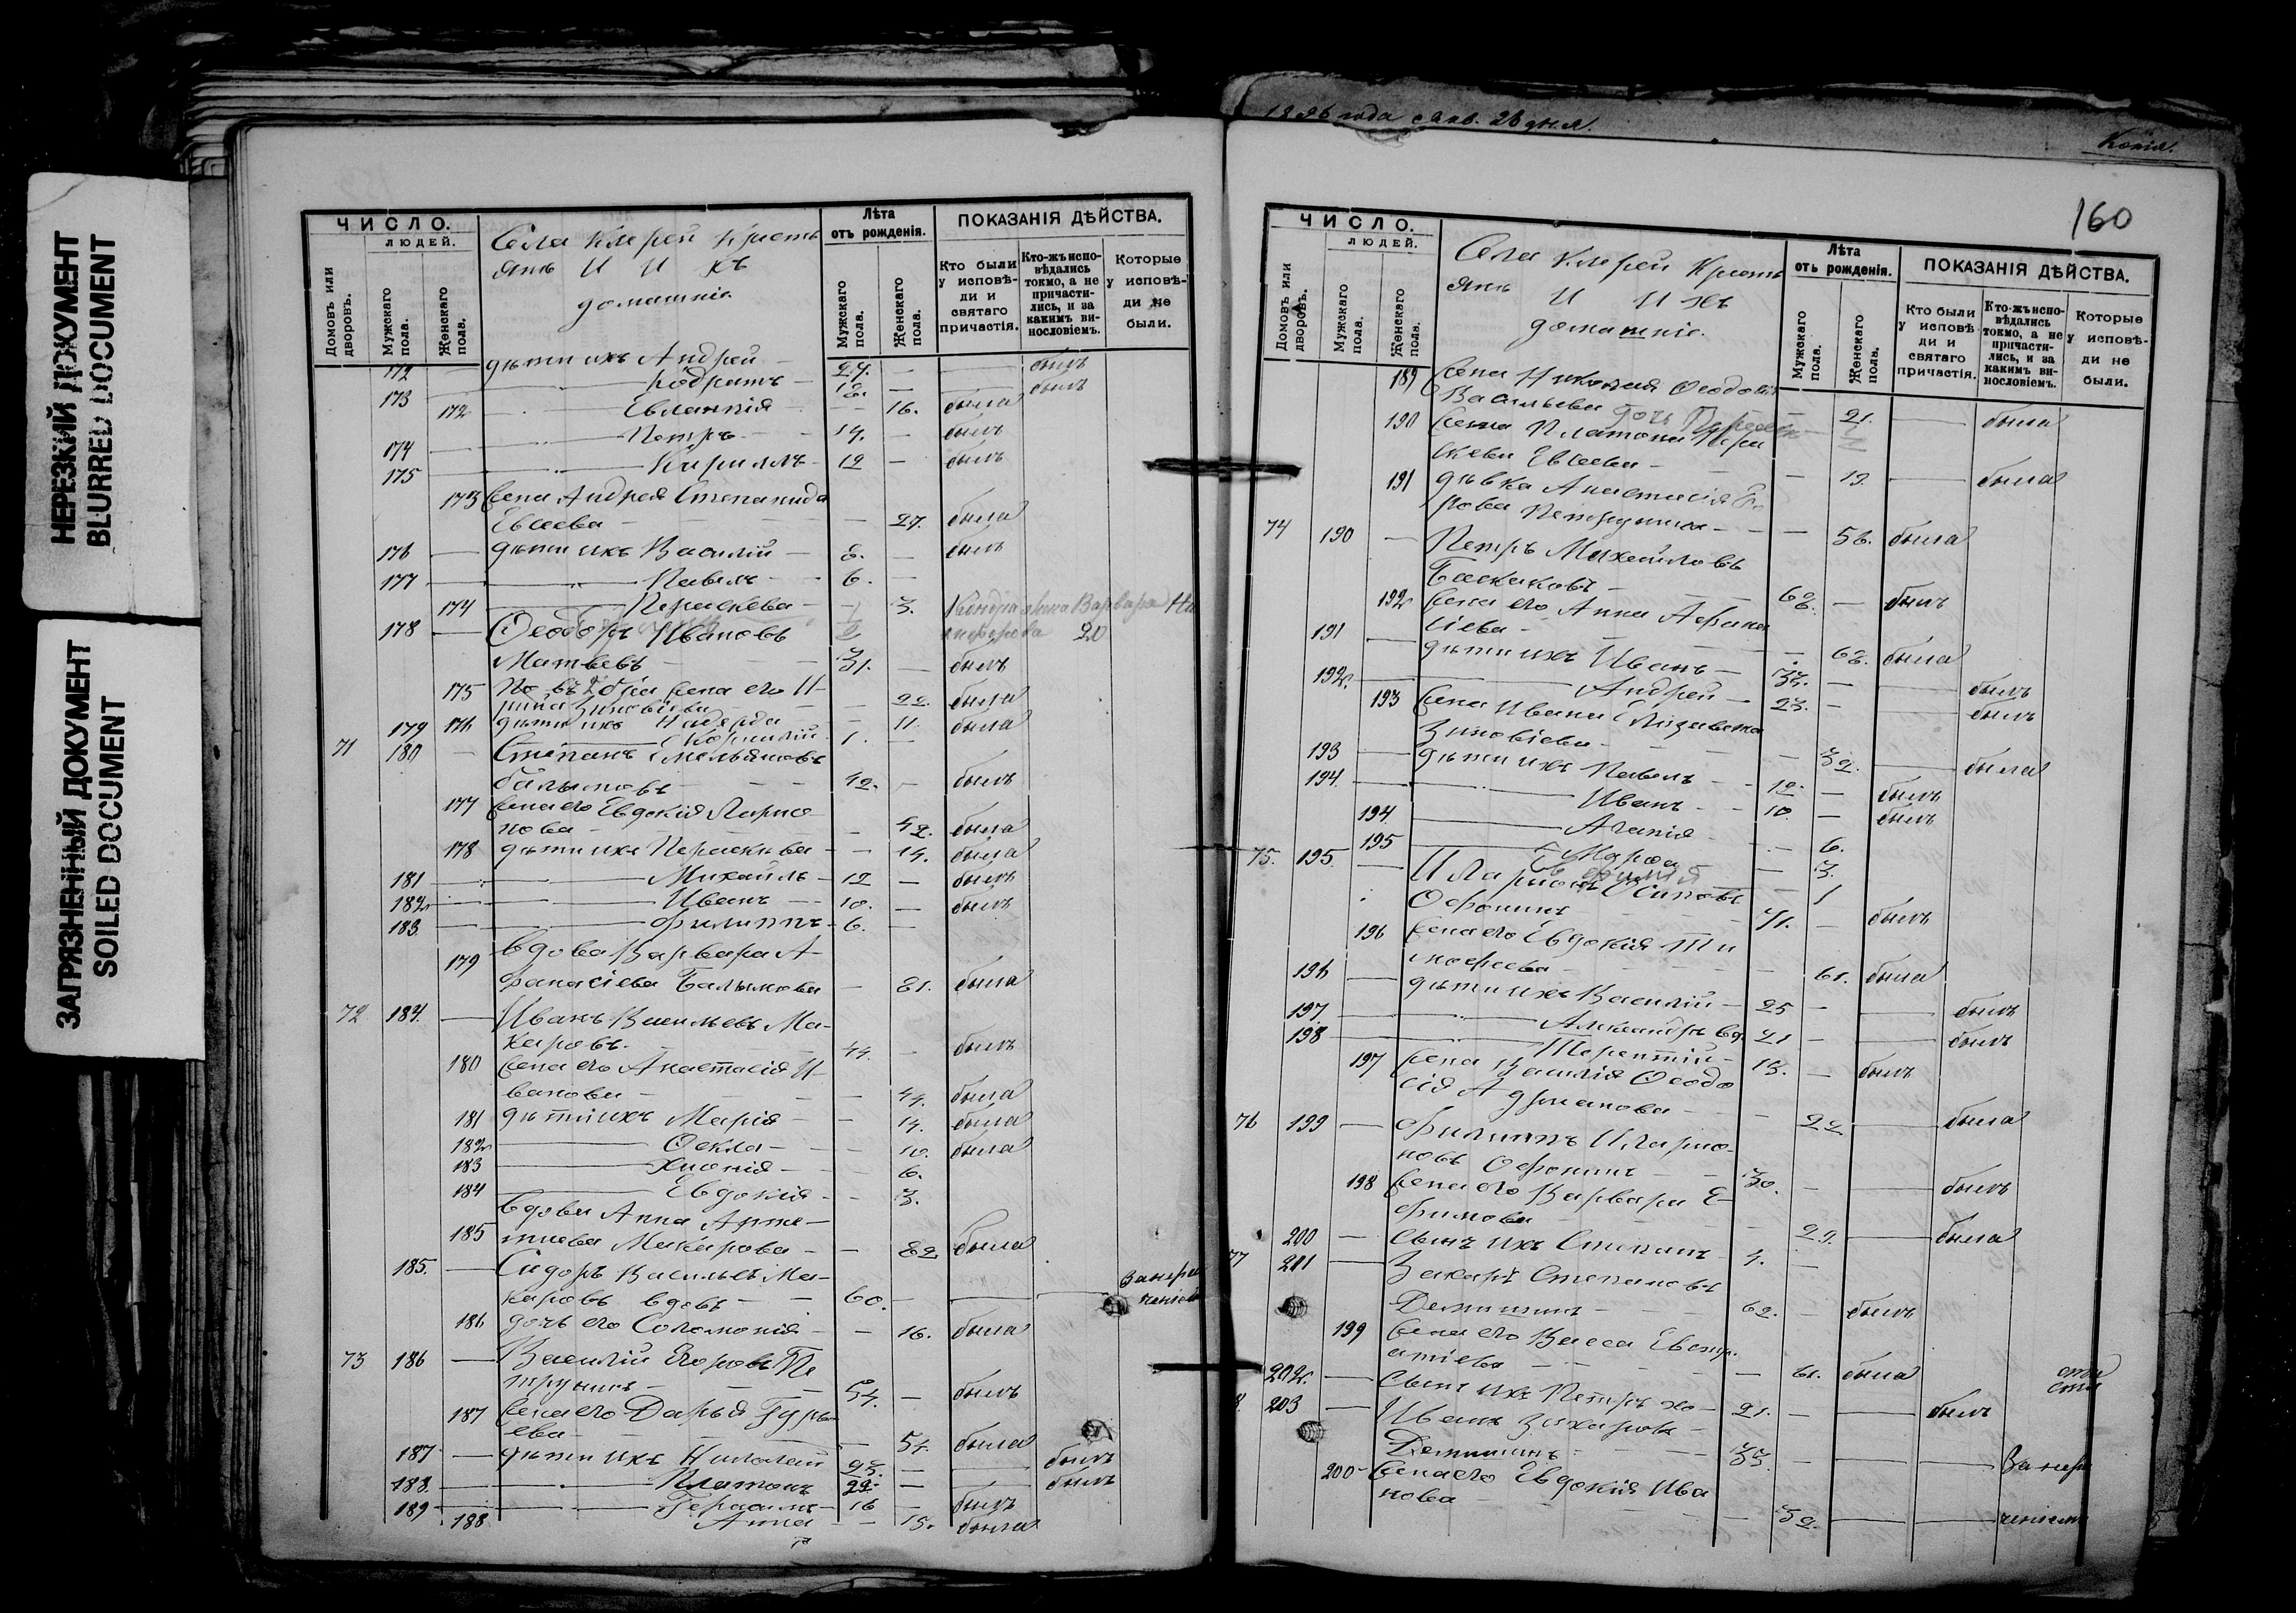 НЕРЕЗКИЙ ДОКУМЕНТ
BLURRED DOCUMENT
ЗАГРЯЗНЕННЫЙ ДОКУМЕНТ
SOILED DOCUMENT
ЧИСЛО.
ЛЮДЕЙ.
Домовъ или дворовъ.
Мужскаго пола.
Женскаго пола.
Села Кмерей Кресть
янъ и ихъ
домашніе
Лѣта
отъ рожденія.
Мужскаго пола.
Женскаго пола.
ПОКАЗАНІЯ ДѢЙСТВА.
Кто были у исповѣди и святаго причастія.
Кто-жъ исповѣдались токмо, а не причастились, и за какимъ винословіемъ.
Которые у исповѣди не были.
172 — дѣти ихъ Андрей — 27. — — былъ
173 — Кодратъ — 18. — — былъ
172 Евлампія — — 16. была
174 — Петръ — 14. — былъ
175 — Кириллъ — 12 — былъ
173 Жена Андрея Степанида
Евсеева — — 27. была
176 — дѣти ихъ Василій — 8. — былъ
177 — Павелъ — 6. —
174 Параскева — — 3.
178 — Ѳеодоръ Ивановъ
Матвеевъ — 31. — былъ
175 жена его И-
рина Зиновіева — 22. была
179 176 дѣти ихъ — 11. была
71 180 — Степанъ Емельяновъ
Балымовъ — 42. — былъ
177 Жена его Евдокія Ларио-
нова — — 42. была
178 дѣти ихъ Параскева — — 14. была
181 — Михаилъ — 12 — былъ
182 — Иванъ — 10. — былъ
183 — Филиппъ — 6. —
179 Вдова Варвара А-
фанасіева Балымова — 81. была
72 184. — Иванъ Васильевъ Ма-
каровъ. — 44. — былъ
180 Жена его Анастасія И-
ванова — — 44. была
181 дѣти ихъ Марія — — 14. была
182 Ѳекла — — 10. была
183 Хіонія — — 6.
184 Евдокія — — 3.
Вдова Анна Арте-
185 міева Макарова — — 82 была
185. — Сидоръ Васильевъ Ма-
каровъ вдовъ — — 60. —
186 дочь его Соломонія — — 16. была
73 186 — Василій Егоровъ Пе
трунинъ — 54. — былъ
187 Жена его Дарья Гурь-
ева — — 54. была
187 — дѣти ихъ Николай 25. — — былъ
188 — Платонъ 22. — — былъ
189 — Герасимъ — 16 — былъ
188 Анна — — 15. была
Копія.
160
ЧИСЛО.
ЛЮДЕЙ.
Домовъ или дворовъ.
Мужскаго пола.
Женскаго пола.
Села Кмерей Кресть
янъ и ихъ
домашніе.
Лѣта
отъ рожденія.
Мужскаго пола.
Женскаго пола.
ПОКАЗАНІЯ ДѢЙСТВА.
Кто были у исповѣди и святаго причастія.
Кто-жъ исповѣдались токмо, а не причастились, и за какимъ винословіемъ.
Которые у исповѣди не были.
189 Жена Николая Ѳеодосія
Васильева — 21. — была
190 Жена Платона Пара
скева Евсеева — — 19. — была
191 дѣвка Анастасія Его
рова Петрунина — — 56. была
74 190 — Петръ Михайловъ
Баскаковъ — 68. — былъ
192 Жена его Анна Афана
сіева — — 68. была
191 — дѣти ихъ Иванъ — 33. — — былъ
192. — Андрей — 23. — — былъ
193 Жена Ивана Елизавета
Зиновіева — — 32. — была
193 — дѣти ихъ Павелъ — 12. — былъ
194. — Иванъ — 10. — былъ
194 Агапія — 6.
195 Марѳа — 3.
75. 195. — Иларіонъ Осиповъ
Офонинъ — 71. — былъ
196 Жена его Евдокія Ти
мофеева — — 61. была
196 — дѣти ихъ Василій — 25 — — былъ
197 — Александръ вд. 21 — — былъ
198 — Терентій — 15. — былъ
197 Жена Василія Ѳеодо
сія Адріанова — — 22 — была
76 199 — Филиппъ Иларіо-
новъ Офонинъ — 30. — — былъ
198 Жена его Варвара Е-
фимова — 29. — была
200 — Сынъ ихъ Степанъ — 4. —
77 201 — Захаръ Степановъ
Демининъ — 62. — былъ
199 Жена его Васса Евстр.
атіева — — 61. была
202. — Сынъ ихъ Петръ хо- 21. — — былъ
203 — Иванъ Захаровъ
Демининъ — 33. — — — За нера
200 Жена его Евдокія Ива
нова — — 32. — — ченіемъ